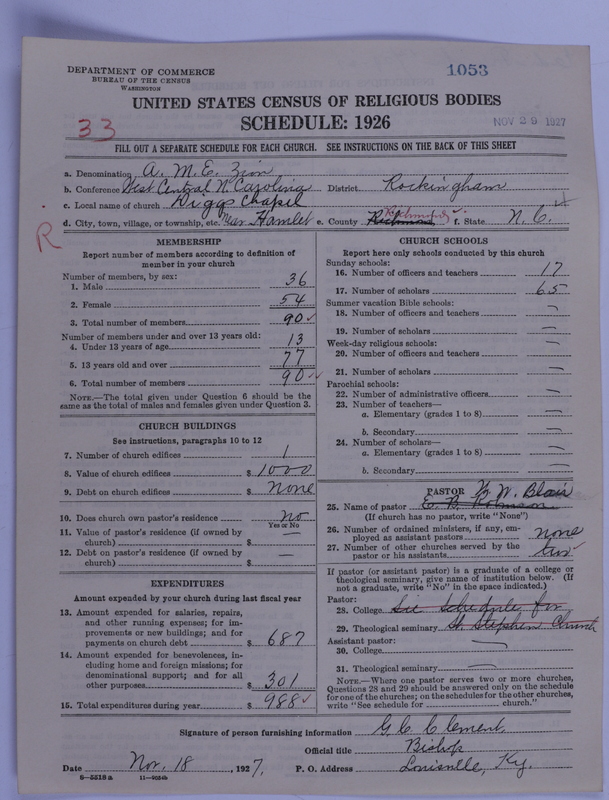 DEPARTMENT OF COMMERCE
BUREAU OF THE CENSUS
WASHINGTON
1053
UNITED STATES CENSUS OF RELIGIOUS BODIES
33
SCHEDULE: 1926
NOV 29 1927
FILL OUT A SEPARATE SCHEDULE FOR EACH CHURCH. SEE INSTRUCTIONS ON THE BACK OF THIS SHEET
a. Denomination A. M. E. Zion
b. Conference West Central N. Carolina District Rockingham
c. Local name of church Diggs Chapel
d. City, town, village, or township, etc. Near Hamlet e. County Richmond Richmond f. State N. C.
R
MEMBERSHIP
Report number of members according to definition of
member in your church
Number of members, by sex:
1. Male 36
2. Female 54
3. Total number of members 90
Number of members under and over 13 years old:
4. Under 13 years of age 13
5. 13 years old and over 77
6. Total number of members 90
NOTE.—The total given under Question 6 should be the
same as the total of males and females given under Question 3.
CHURCH BUILDINGS
See instructions, paragraphs 10 to 12
7. Number of church edifices 1
8. Value of church edifices $ 1000
9. Debt on church edifices $ None
10. Does church own pastor's residence No
Yes or No
11. Value of pastor's residence (if owned by
church) $ —
12. Debt on pastor's residence (if owned by
church) $ —
EXPENDITURES
Amount expended by your church during last fiscal year
13. Amount expended for salaries, repairs,
and other running expenses; for im-
provements or new buildings; and for
payments on church debt $ 687
14. Amount expended for benevolences, in-
cluding home and foreign missions; for
denominational support; and for all
other purposes $ 301
15. Total expenditures during year $ 988
CHURCH SCHOOLS
Report here only schools conducted by this church
Sunday schools:
16. Number of officers and teachers 17
17. Number of scholars 65
Summer vacation Bible schools:
18. Number of officers and teachers —
19. Number of scholars —
Week-day religious schools:
20. Number of officers and teachers —
21. Number of scholars —
Parochial schools:
22. Number of administrative officers —
23. Number of teachers—
a. Elementary (grades 1 to 8) —
b. Secondary —
24. Number of scholars—
a. Elementary (grades 1 to 8) —
b. Secondary —
PASTOR W. Blair
25. Name of pastor E. B. Robinson
(If church has no pastor, write "None")
26. Number of ordained ministers, if any, em-
ployed as assistant pastors none
27. Number of other churches served by the
pastor or his assistants two
If pastor (or assistant pastor) is a graduate of a college or
theological seminary, give name of institution below. (If
not a graduate, write "No" in the space indicated.)
Pastor:
28. College See Schedule for
29. Theological seminary St. Stephen Church
Assistant pastor:
30. College —
31. Theological seminary —
NOTE.—Where one pastor serves two or more churches,
Questions 28 and 29 should be answered only on the schedule
for one of the churches; on the schedules for the other churches,
write "See schedule for church."
Signature of person furnishing information G. C. Clement
Official title Bishop
Date Nov. 18, 1927. P. O. Address Louisville, Ky.
6—5518a 11—9054b